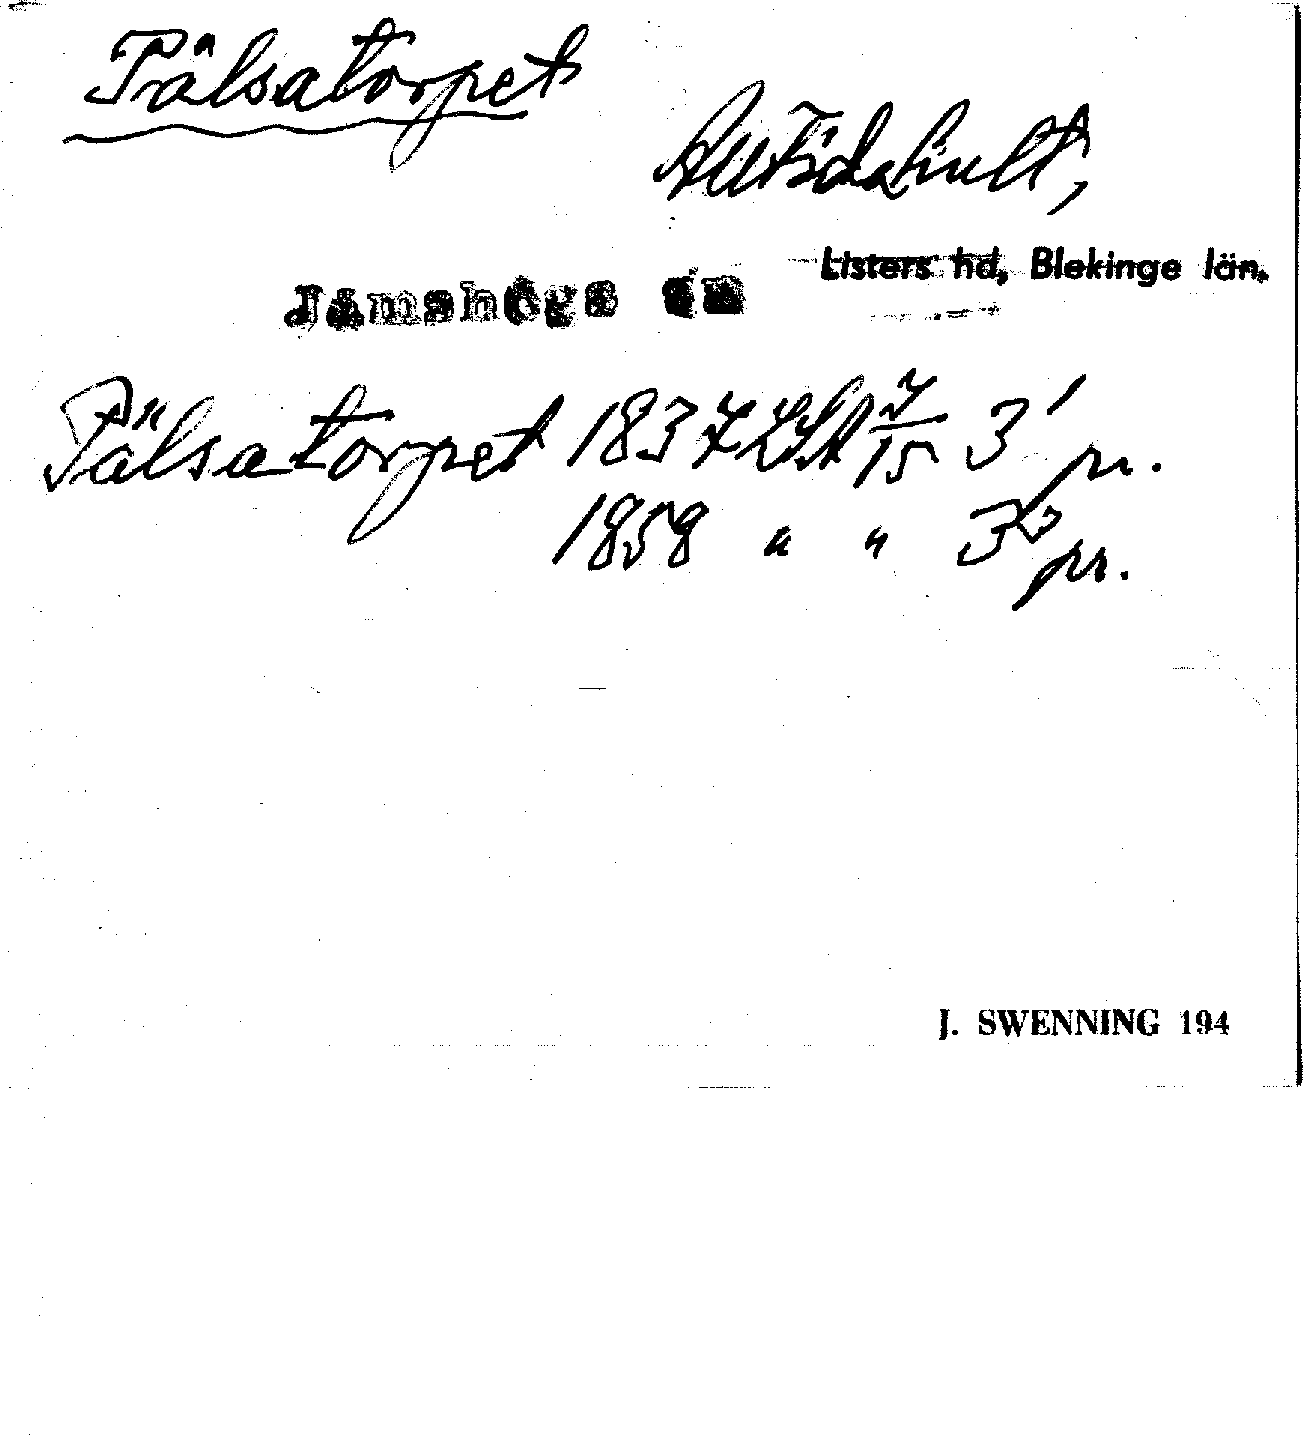 Pälsatorpet
Jämshögs sn
Listers hd, Blekinge län.
Pälsatorpet 1837 LSA 7/15 3' pr.
1858 " " 3 pr.
J. SWENNING 194